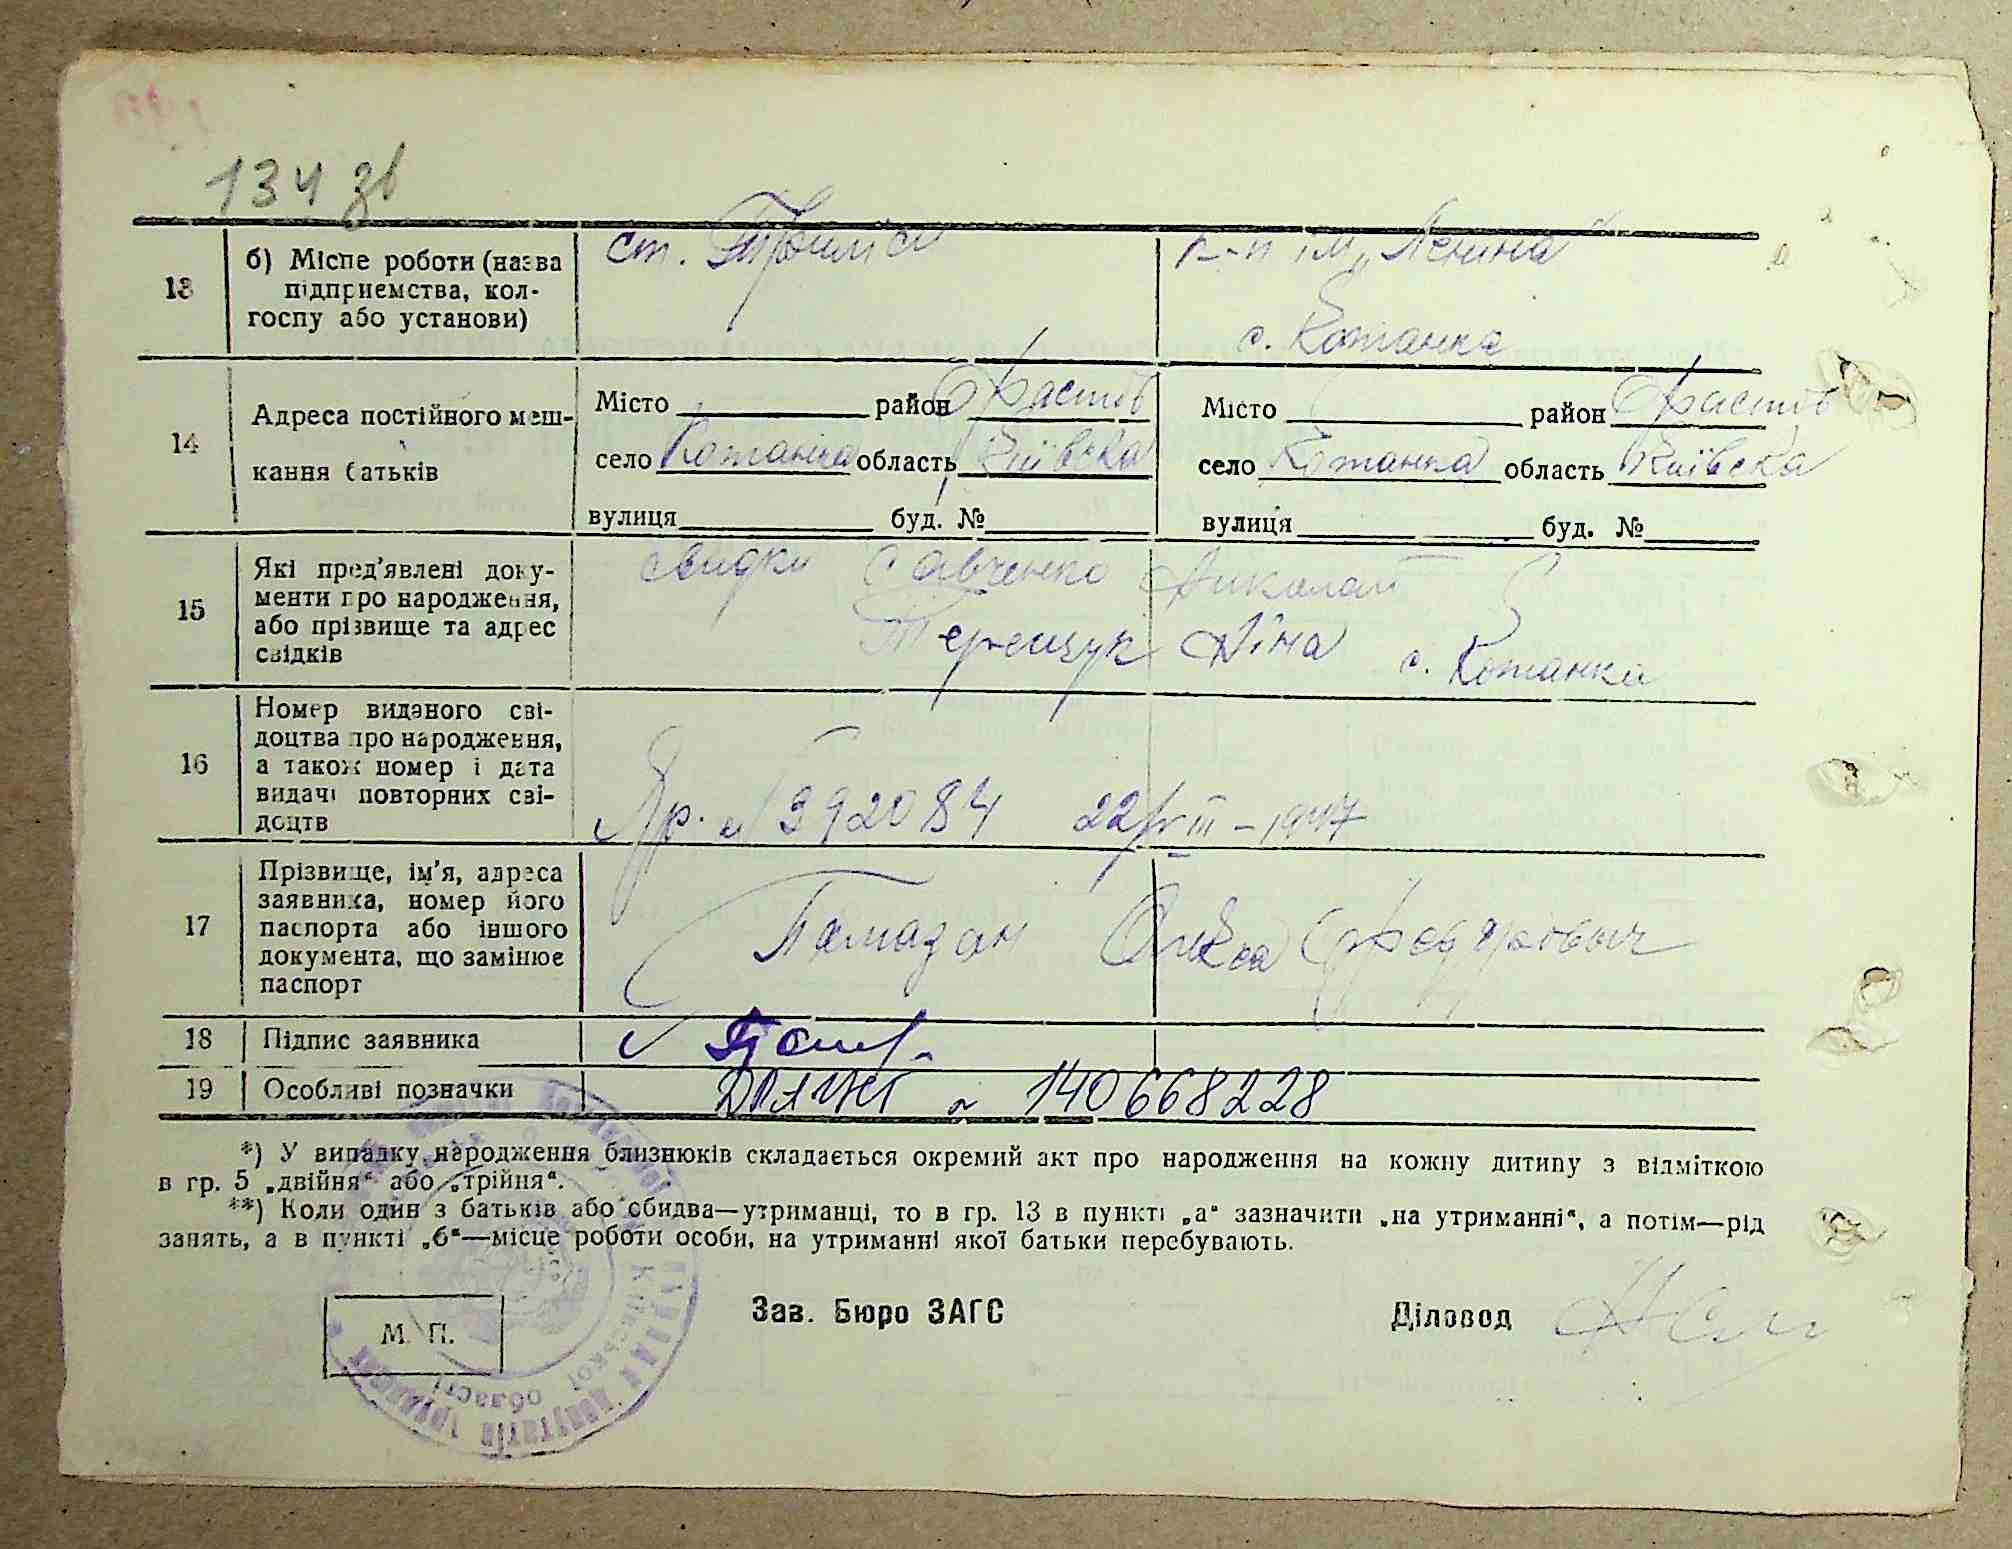 134 зв
13
б) Місце роботи (назва
підприємства, кол-
госпу або установи)
ст.
к-п ім. „Леніна“
с. Кожанка
14
Адреса постійного меш-
кання батьків
Місто район Фастів
село Кожанка область Київська
вулиця буд. №
Місто район Фастів
село Кожанка область Київська
вулиця буд. №
15
Які пред'явлені доку-
менти про народження,
або прізвище та адрес
свідків
свидки Савченко Николай
Терещук Ніна с. Кожанка
16
Номер виданого сві-
доцтва про народження,
а також номер і дата
видачі повторних сві-
доцтв
№ 392084 22/VIII – 1947
17
Прізвище, ім'я, адреса
заявника, номер його
паспорта або іншого
документа, що замінює
паспорт
Памазан Олекса Федорович
18
Підпис заявника
19
Особливі позначки
№ 140668228
*) У випадку народження близнюків складається окремий акт про народження на кожну дитину з відміткою
в гр. 5 „двійня“ або „трійня“.
**) Коли один з батьків або обидва—утриманці, то в гр. 13 в пункті „а“ зазначити „на утриманні“, а потім—рід
занять, а в пункті „б“—місце роботи особи, на утриманні якої батьки перебувають.
М. П.
Зав. Бюро ЗАГС
Діловод
Київської області
депутатів трудящих